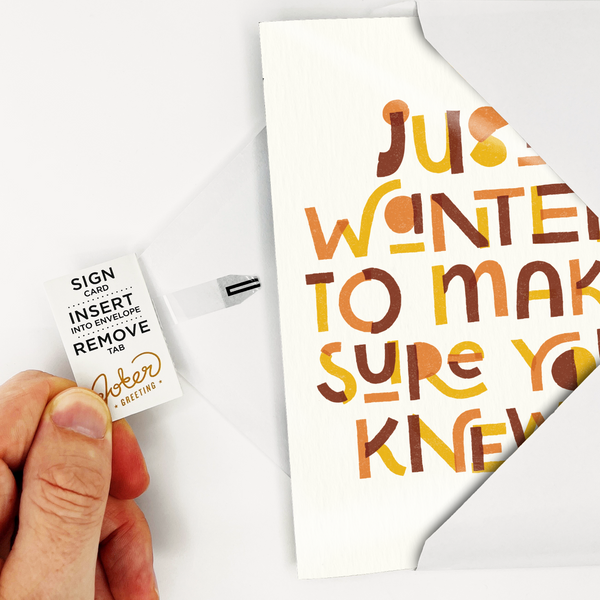 SIGN
CARD
INSERT
INTO ENVELOPE
REMOVE
TAB
Joter
GREETING
JUS
WANTE
TO MAK
SURE YO
KNEW